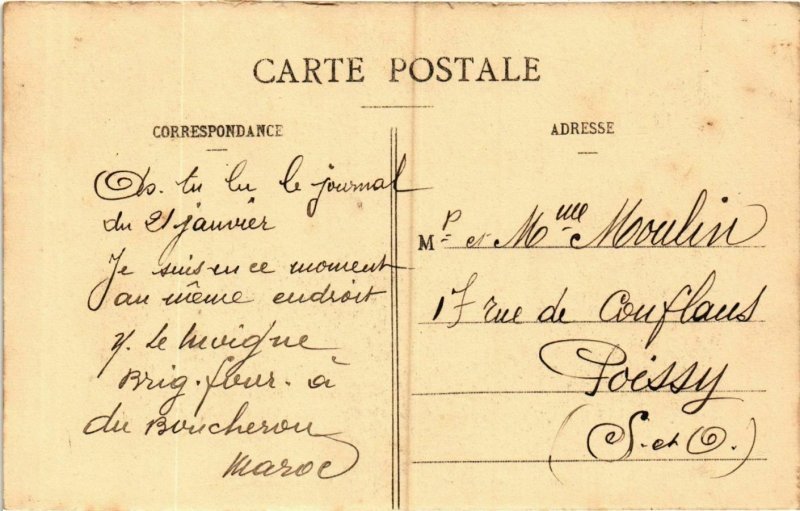 CARTE POSTALE
CORRESPONDANCE
As-tu lu le journal
du 21 janvier
Je suis en ce moment
au même endroit
Y. Le Moigne
Brig. four. à
du Boucheron
Maroc
ADRESSE
Mr et Mme Moulin
17 rue de Conflans
Poissy
(S. et O.)